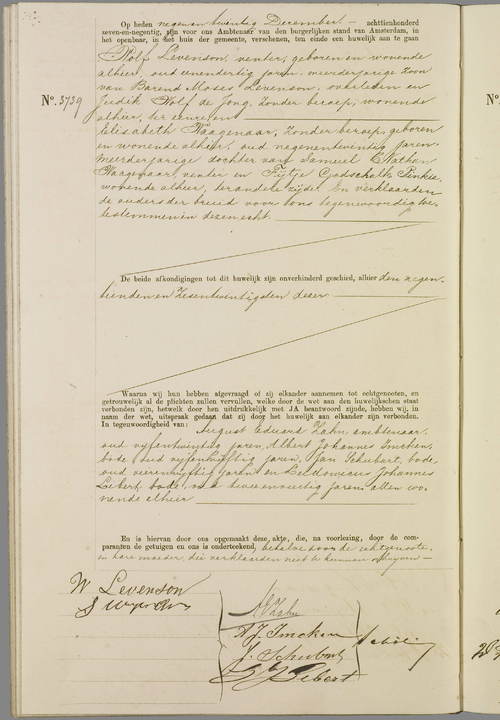 Op heden negen en twintig December – achttienhonderd
zeven-en-negentig, zijn voor ons Ambtenaar van den burgerlijken stand van Amsterdam, in
het openbaar, in het huis der gemeente, verschenen, ten einde een huwelijk aan te gaan
Wolf Levenson, venter, geboren en wonende
alhier, oud eenendertig jaren, meerderjarige zoon
van Barend Moses Levenson, overleden en
Judik Wolf de Jong, zonder beroep, wonende
No. 3739
alhier, ter eenre en
Elisabeth Waagenaar, zonder beroep, geboren
en wonende alhier, oud negenentwintig jaren,
meerderjarige dochter van Samuel Nathan
Waagenaar, venter en Fijtje Godschalk Pinkse,
wonende alhier, ter andere zijde. En verklaarden
de ouders der bruid voor ons tegenwoordig toe-
testemmen in dezen echt.
De beide afkondigingen tot dit huwelijk zijn onverhinderd geschied, alhier den negen-
tienden en zesentwintigsten dezer
Waarna wij hun hebben afgevraagd of zij elkander aannemen tot echtgenooten, en
getrouwelijk al de plichten zullen vervullen, welke door de wet aan den huwelijken staat
verbonden zijn, hetwelk door hen uitdrukkelijk met JA beantwoord zijnde, hebben wij, in
naam der wet, uitspraak gedaan dat zij door het huwelijk aan elkander zijn verbonden.
In tegenwoordigheid van: August Eduard Hahn, ambtenaar,
oud vijfentwintig jaren, Albert Johannes Imcken,
bode, oud vijfenvijftig jaren, Jan Schubert, bode,
oud jaren en Ludovicus Johannes
Libert, bode, oud tweeenveertig jaren, allen wo-
nende alhier
En is hiervan door ons opgemaakt deze akte, die, na voorlezing, door de com-
paranten de getuigen en ons is onderteekend, behalve door de echtgenoote
en hare moeder, die verklaarden niet te kunnen schrijven –
W Levenson
S
Hahn
A J. Imcken
J. Schubert
L J Libert